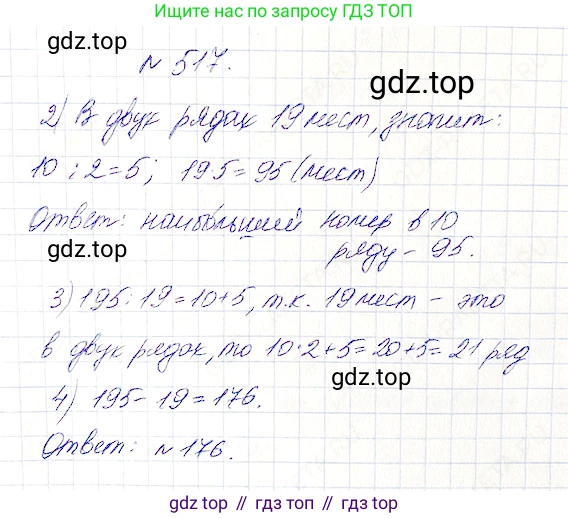 Ищите нас по запросу ГДЗ ТОП
gdz.top
№ 517.
gdz.top
2) В двух рядах 19 мест, значит:
10 : 2 = 5; 19·5 = 95 (мест)
Ответ: наибольший номер в 10
gdz.top
ряду – 95.
3) 195 : 19 = 10+5, т.к. 19 мест – это
в двух рядах, то 10·2+5=20+5=21 ряд
gdz.top
4) 195 – 19 = 176.
Ответ: № 176.
gdz.top // гдз топ // гдз.топ